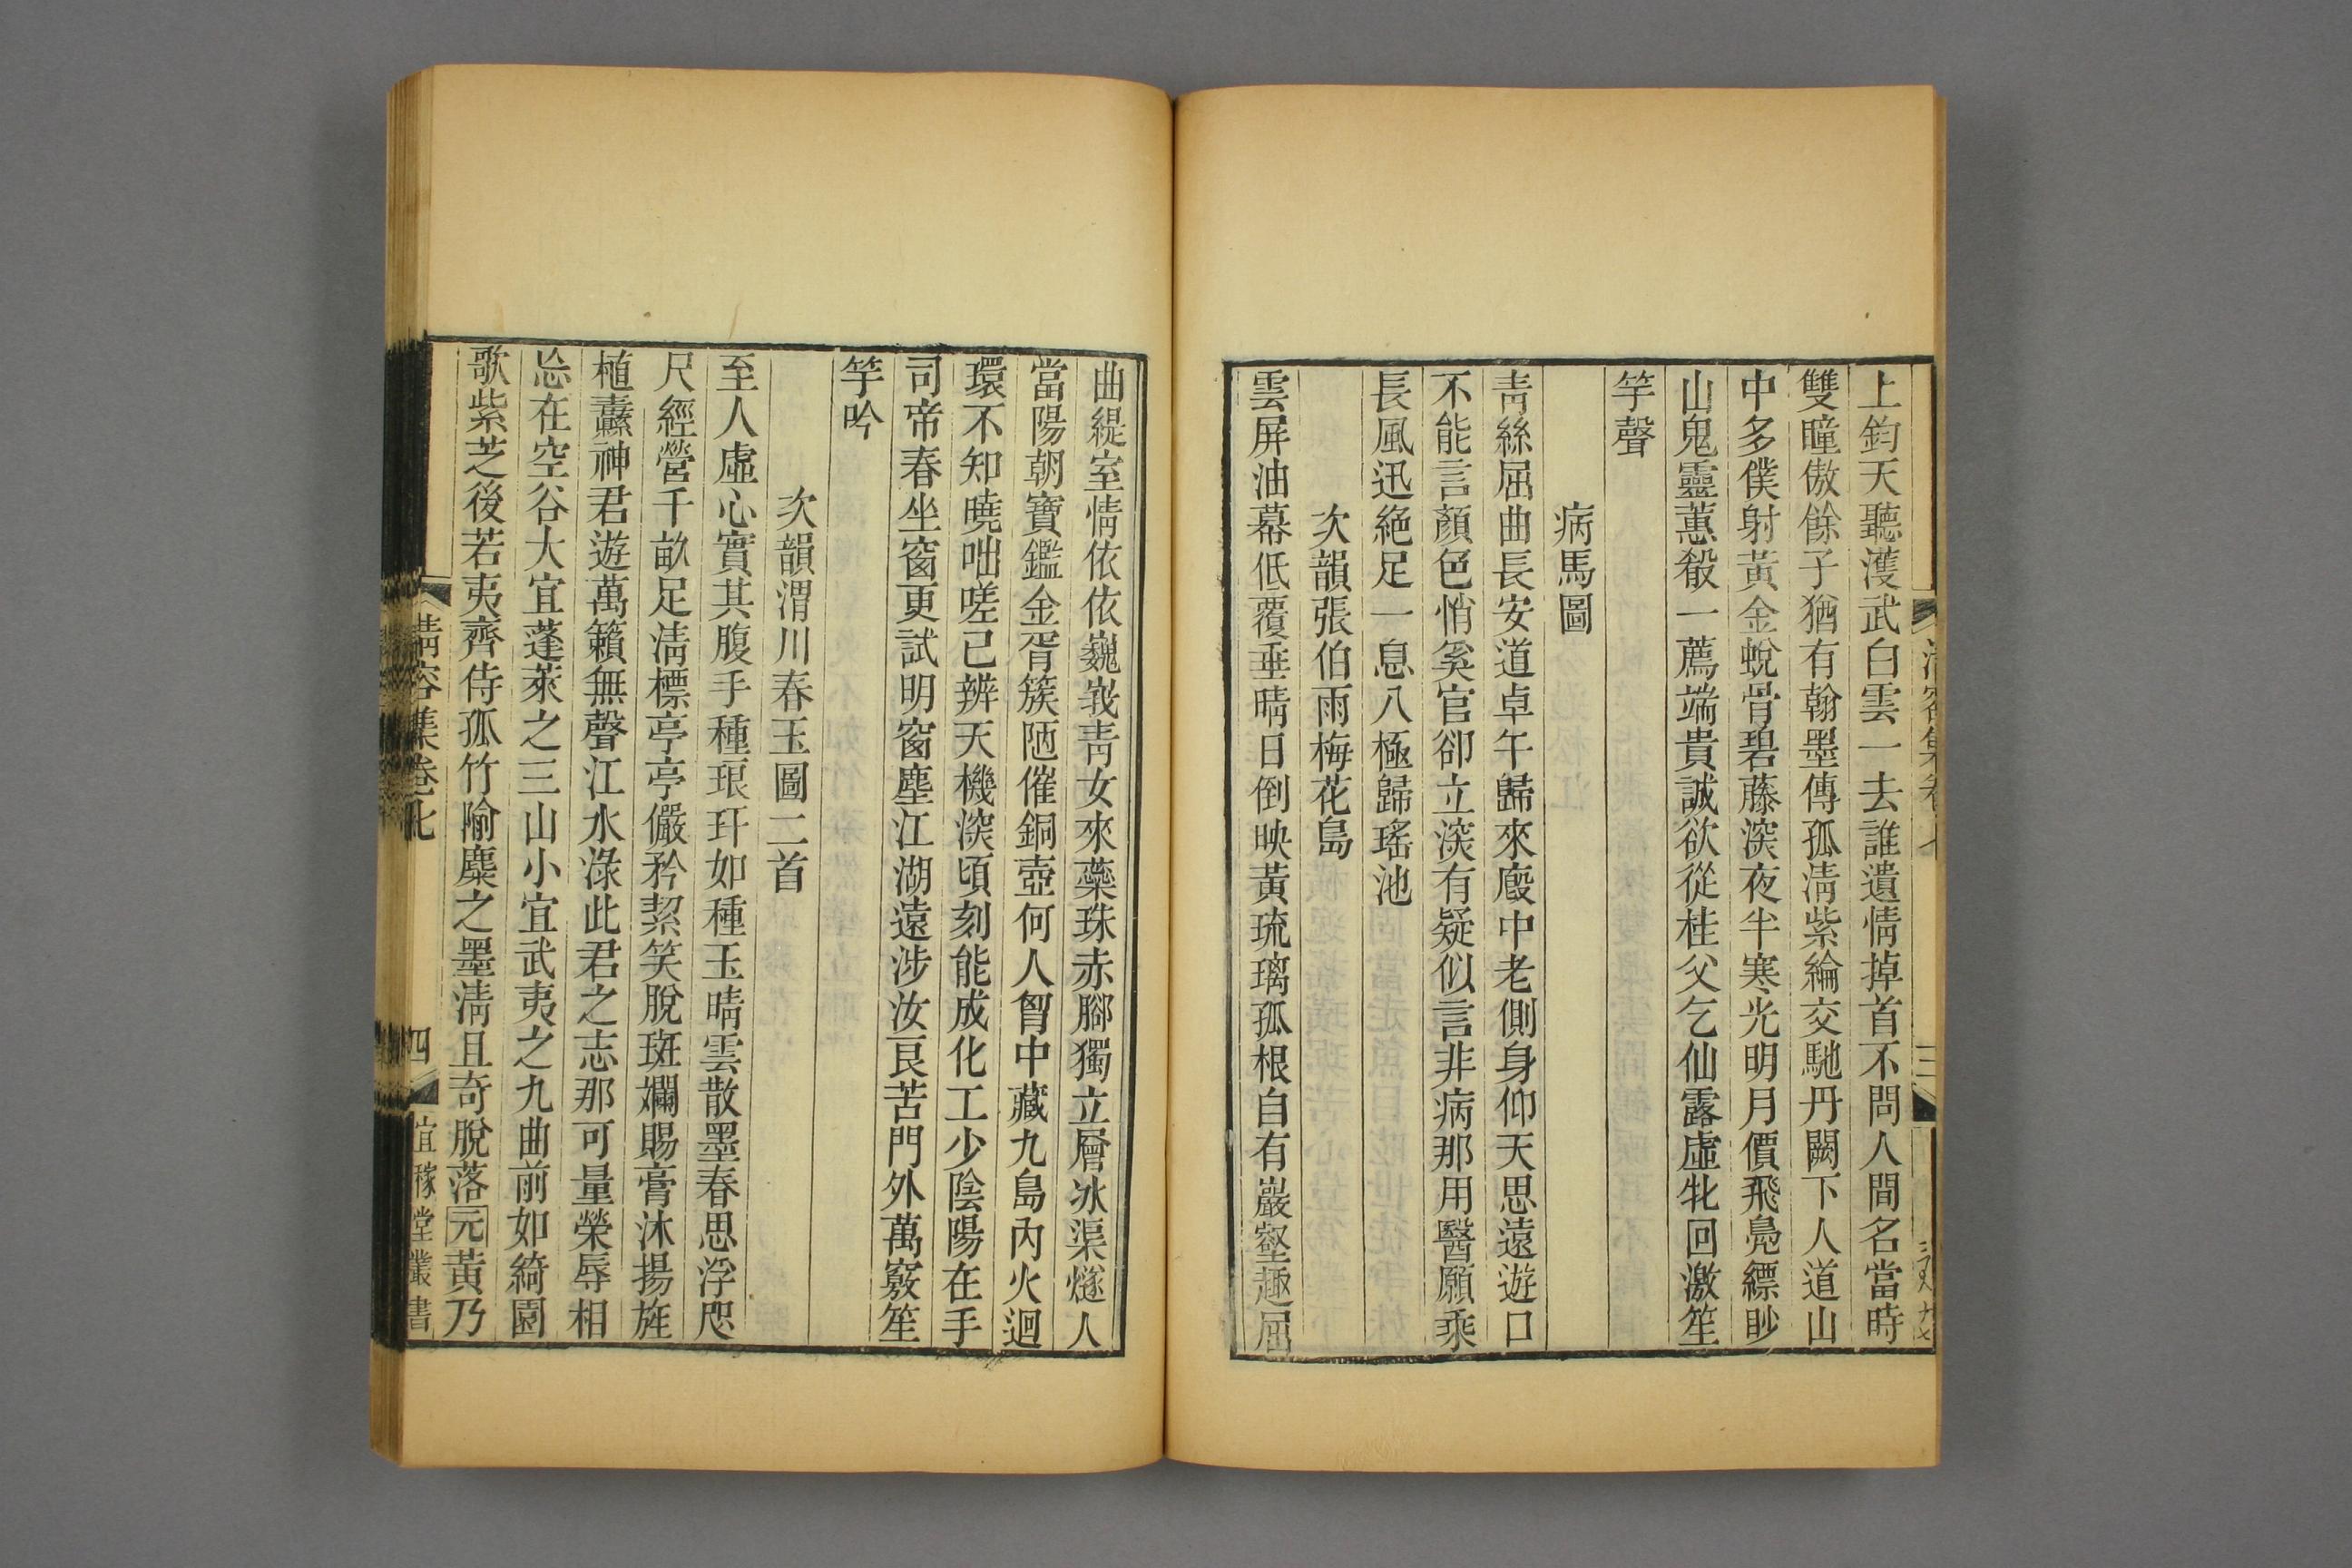 上鈞天聽濩武白雲一去誰遣情掉首不問人間名當時
雙瞳傲餘子猶有翰墨傳孤淸紫綸交馳丹闕下人道山
中多僕射黃金蛻骨碧藤深夜半寒光明月價飛鳧縹眇
山鬼靈蕙殽一薦端貴誠欲從桂父乞仙露虛牝回激笙
竽聲
病馬圖
靑絲屈曲長安道卓午歸來廄中老側身仰天思遠遊口
不能言顏色悄奚官卻立深有疑似言非病那用醫願乘
長風迅絕足一息八極歸瑤池
次韻張伯雨梅花島
雲屏油幕低覆垂晴日倒映黃琉璃孤根自有巖壑趣屈
曲緹室情依依巍峩靑女來蘂珠赤腳獨立層冰渠燧人
當陽朝寶鑑金胥簇陋催銅壺何人胷中藏九島內火迴
環不知曉咄嗟已辨天機深頃刻能成化工少陰陽在手
司帝春坐窗更試明窗塵江湖遠涉汝良苦門外萬竅笙
竽吟
次韻渭川春玉圖二首
至人虛心實其腹手種琅玕如種玉晴雲散墨春思浮咫
尺經營千畝足淸標亭亭儼矜絜笑脫斑斕賜膏沐揚旌
植纛神君遊萬籟無聲江水淥此君之志那可量榮辱相
忘在空谷大宜蓬萊之三山小宜武夷之九曲前如綺園
歌紫芝後若夷齊侍孤竹隃麋之墨淸且奇脫落元黃乃
淸容集卷七
四
宜稼堂叢書